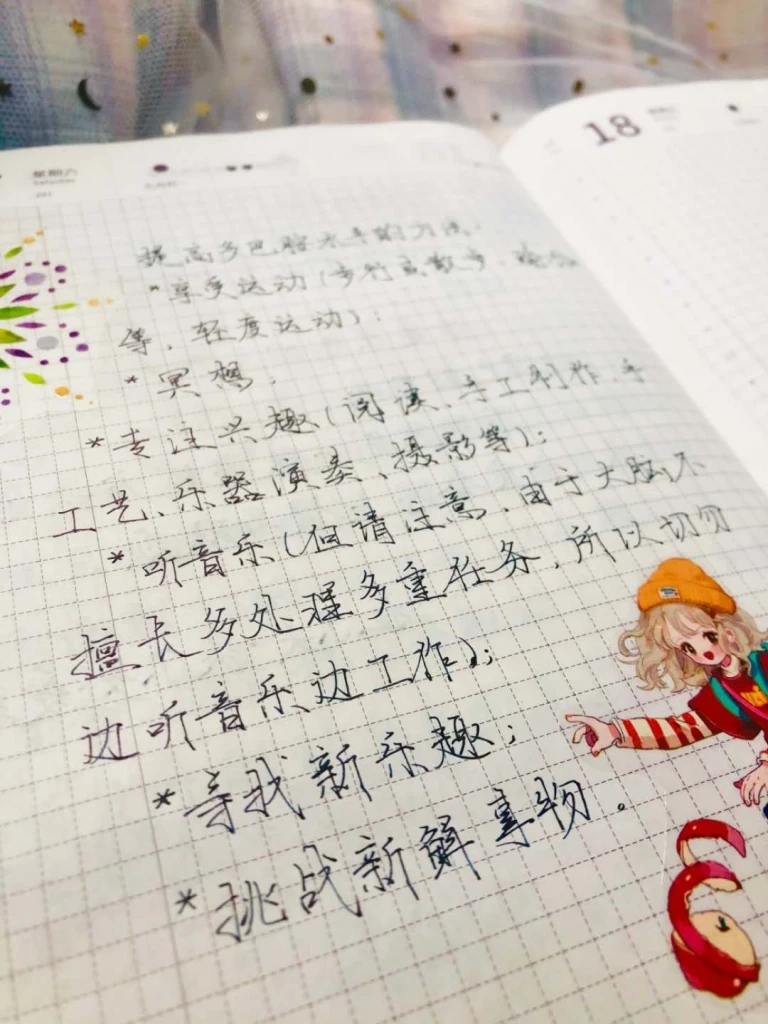 星期六
Saturday
18
提高多巴胺水平的方法:
*享受运动(步行或散步、瑜伽
等,轻度运动);
*冥想;
*专注兴趣(阅读、手工制作、手
工艺、乐器演奏、摄影等);
*听音乐(但请注意,由于大脑不
擅长多处理多重任务,所以切勿
边听音乐边工作);
*寻找新乐趣;
*挑战新解事物。